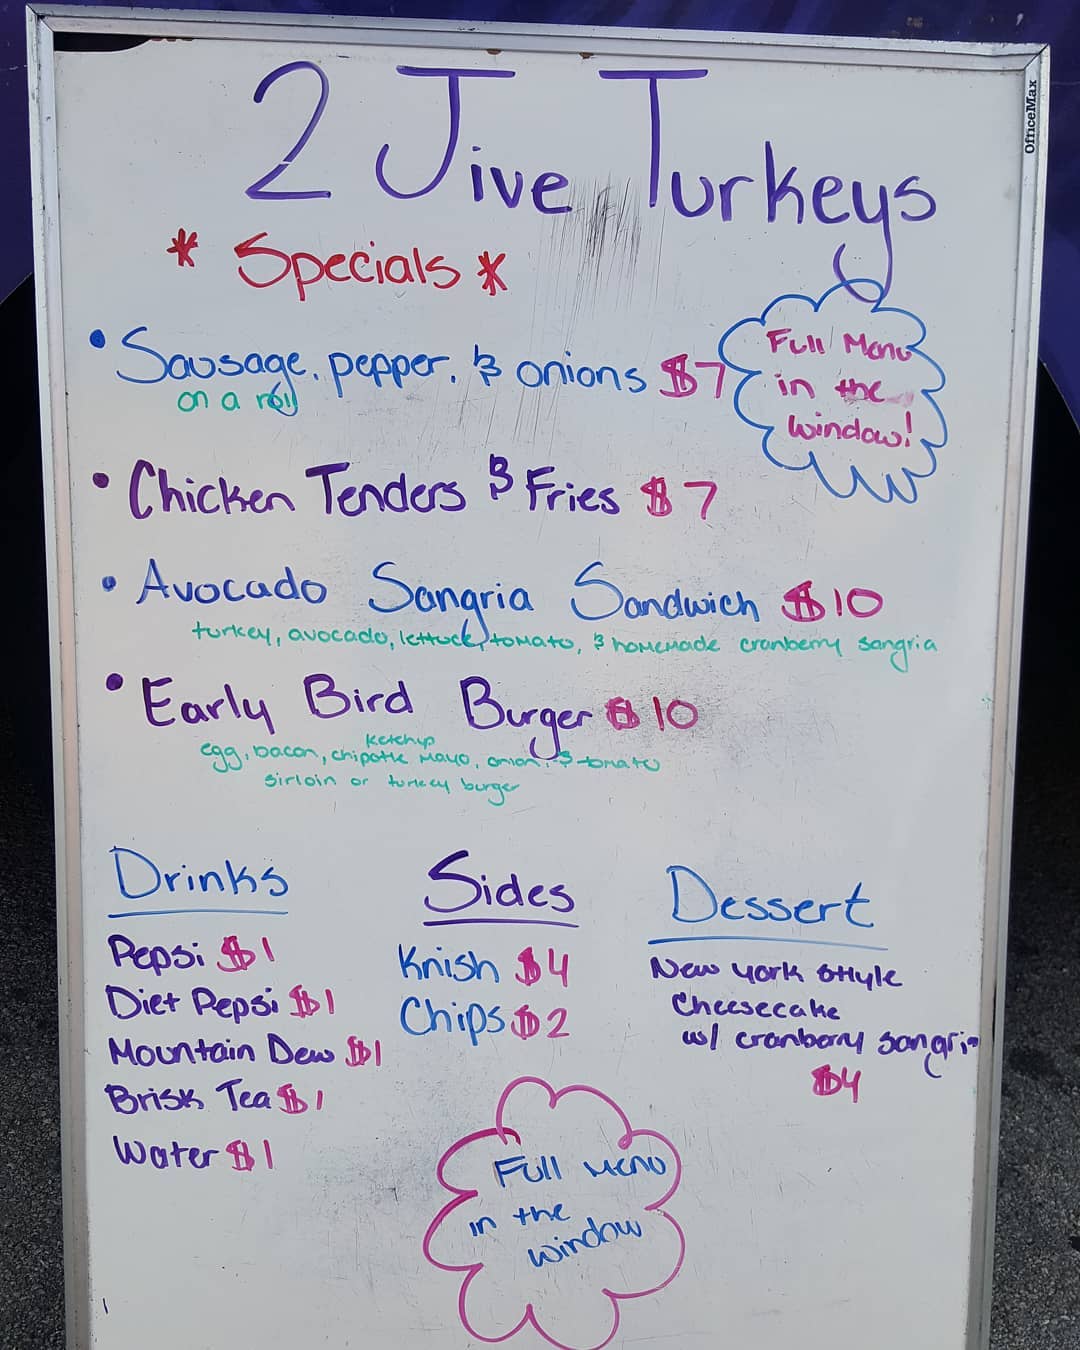 OfficeMax
2 Jive Turkeys
* Specials *
• Sausage, pepper, & onions $7
on a roll
Full Menu
in the
window!
• Chicken Tenders & Fries $7
• Avocado Sangria Sandwich $10
turkey, avocado, lettuce, tomato, & homemade cranberry sangria
• Early Bird Burger $10
ketchup
egg, bacon, chipotle mayo, onion, & tomato
sirloin or turkey burger
Drinks
Pepsi $1
Diet Pepsi $1
Mountain Dew $1
Brisk Tea $1
Water $1
Sides
Knish $4
Chips $2
Dessert
New York Style
Cheesecake
w/ cranberry sangria
$4
Full Menu
in the
window